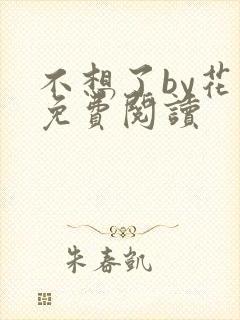 不想了by花
免費閱讀
朱春凱